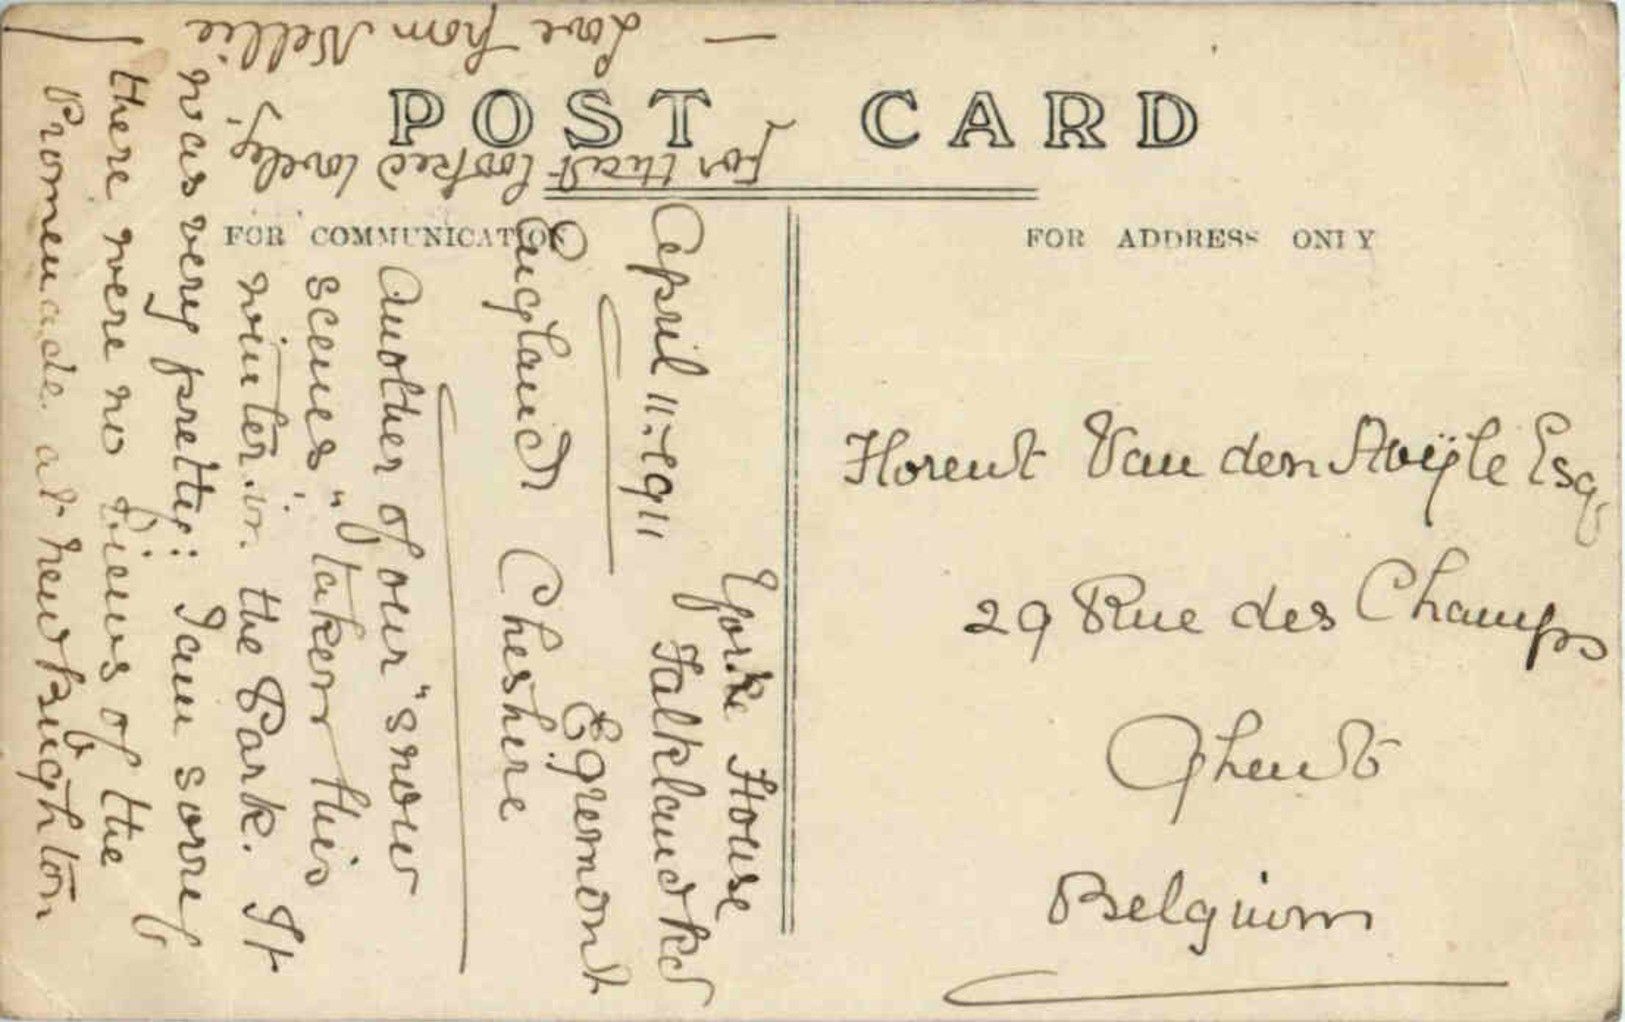 POST CARD
FOR COMMUNICATION
FOR ADDRESS ONLY
Yorke House
April 11. 1911 Falkland Rd
Egremont
England Cheshire
Another of our "snow
scenes" taken this
winter in the Park. It
was very pretty: I am sorry
there were no views of the
Promenade at New Brighton
for that looked lovely.
— Love from Nellie
Florent Van den
Esq.
29 Rue des Champs
Ghent
Belgium